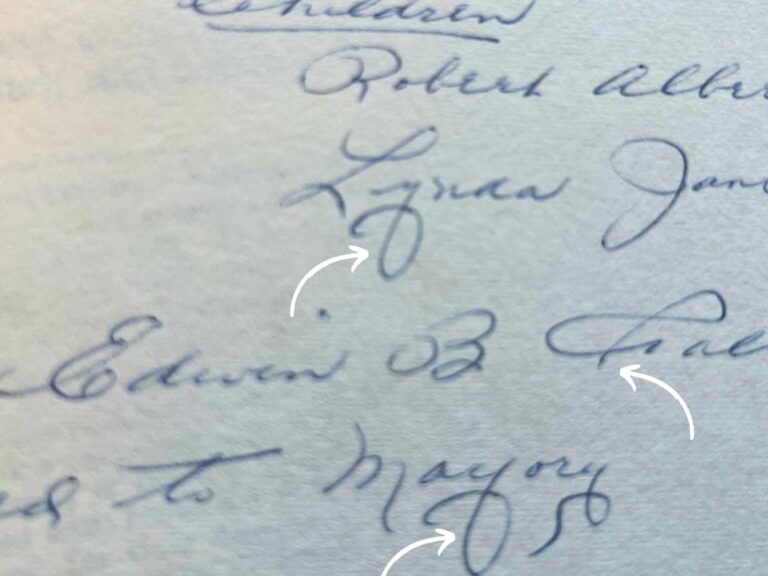 Children
Robert Alber
Lynda Jan
Edwin B
ed to Marjory